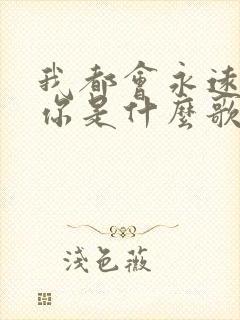 我都會永遠
你是什麼歌
淺色薇